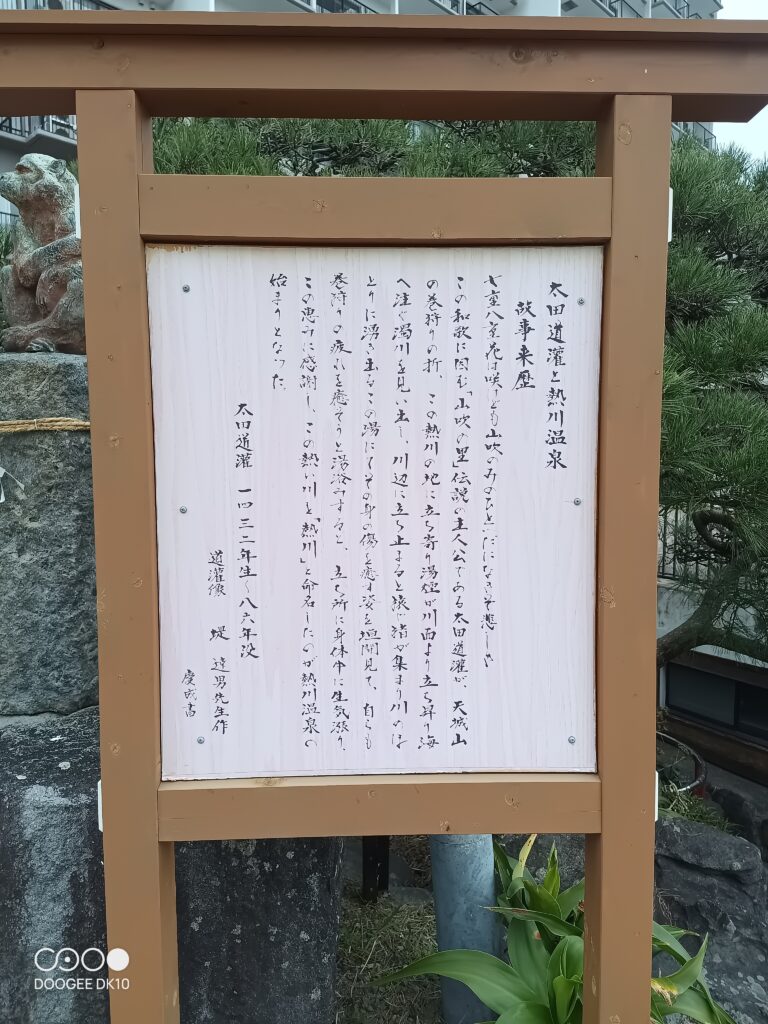 太田道灌と熱川温泉
故事来歴
七重八重花は咲けども山吹のみのひとつだになきぞ悲しき
この和歌に因む「山吹の里」伝説の主人公である太田道灌が、天城山
の巻狩りの折、この熱川の地に立ち寄り湯煙が川面より立ち昇り海
へ注ぐ濁川を見い出し、川辺に立ち止まると猿や猪が集まり川のほ
とりに湧き出るこの湯にてその身の傷を癒す姿を垣間見て、自らも
巻狩りの疲れを癒そうと湯浴みすると、立ち所に身体中に生気漲り、
この恵みに感謝し、この熱い川を「熱川」と命名したのが熱川温泉の
始まりとなった
太田道灌 一四三二年生〜八六年没
道灌像 堤 達男先生作
慶成書
DOOGEE DK10